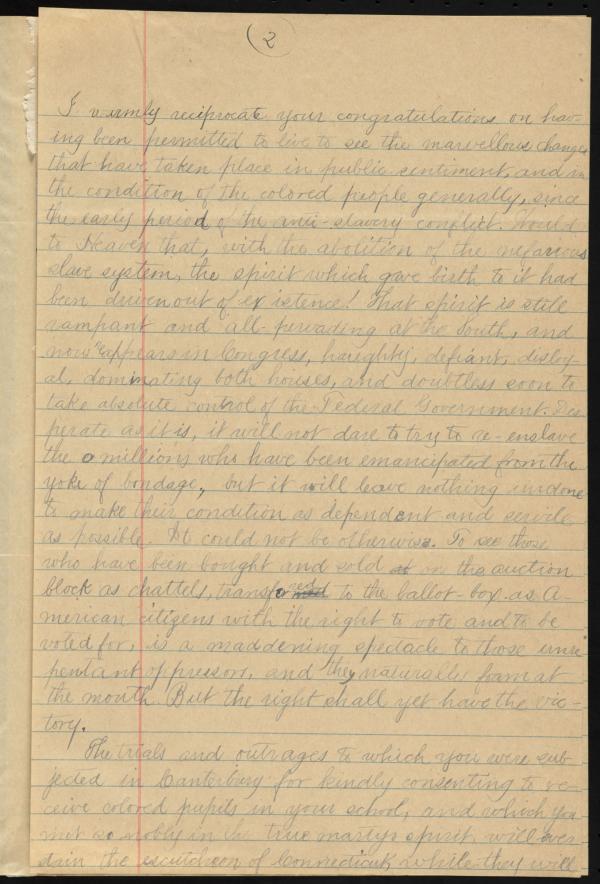 (2
I warmly reciprocate your congratulations on hav-
ing been permitted to live to see the marvellous changes
that have taken place in public sentiment, and in
the condition of the colored people generally, since
the early period of the anti-slavery conflict. Would
to Heaven that, with the abolition of the nefarious
slave system, the spirit which gave birth to it had
been driven out of existence! That spirit is still
rampant and all-pervading at the South, and
now appears in Congress, haughty, defiant, disloy-
al, dominating both houses, and doubtless soon to
take absolute control of the Federal Government. Des
perate as it is, it will not dare to try to re-enslave
the millions who have been emancipated from the
yoke of bondage, but it will leave nothing undone
to make their condition as dependent and servile
as possible. It could not be otherwise. To see those
who have been bought and sold at on the auction
block as chattels, transfered to the ballot-box as A-
merican citizens with the right to vote and to be
voted for, is a maddening spectacle to those unre
pentant oppressors, and they naturally foam at
the mouth. But the right shall yet have the vic-
tory.
The trials and outrages to which you were sub
jected in Canterbury for kindly consenting to re-
ceive colored pupils in your school, and which you
met so nobly in the true martyr spirit, will ever
stain the escutcheon of Connecticut, while they will